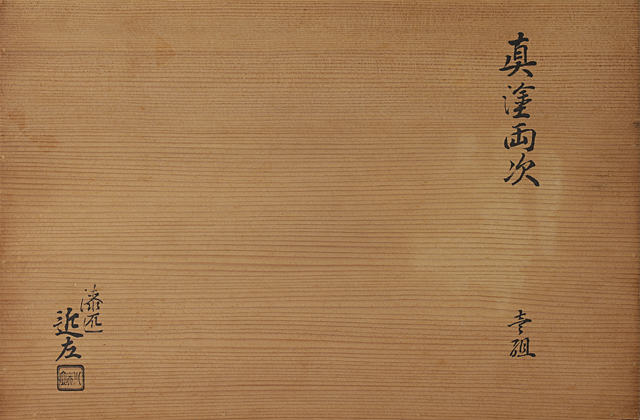 真塗両次
壱組
漆匠
近左